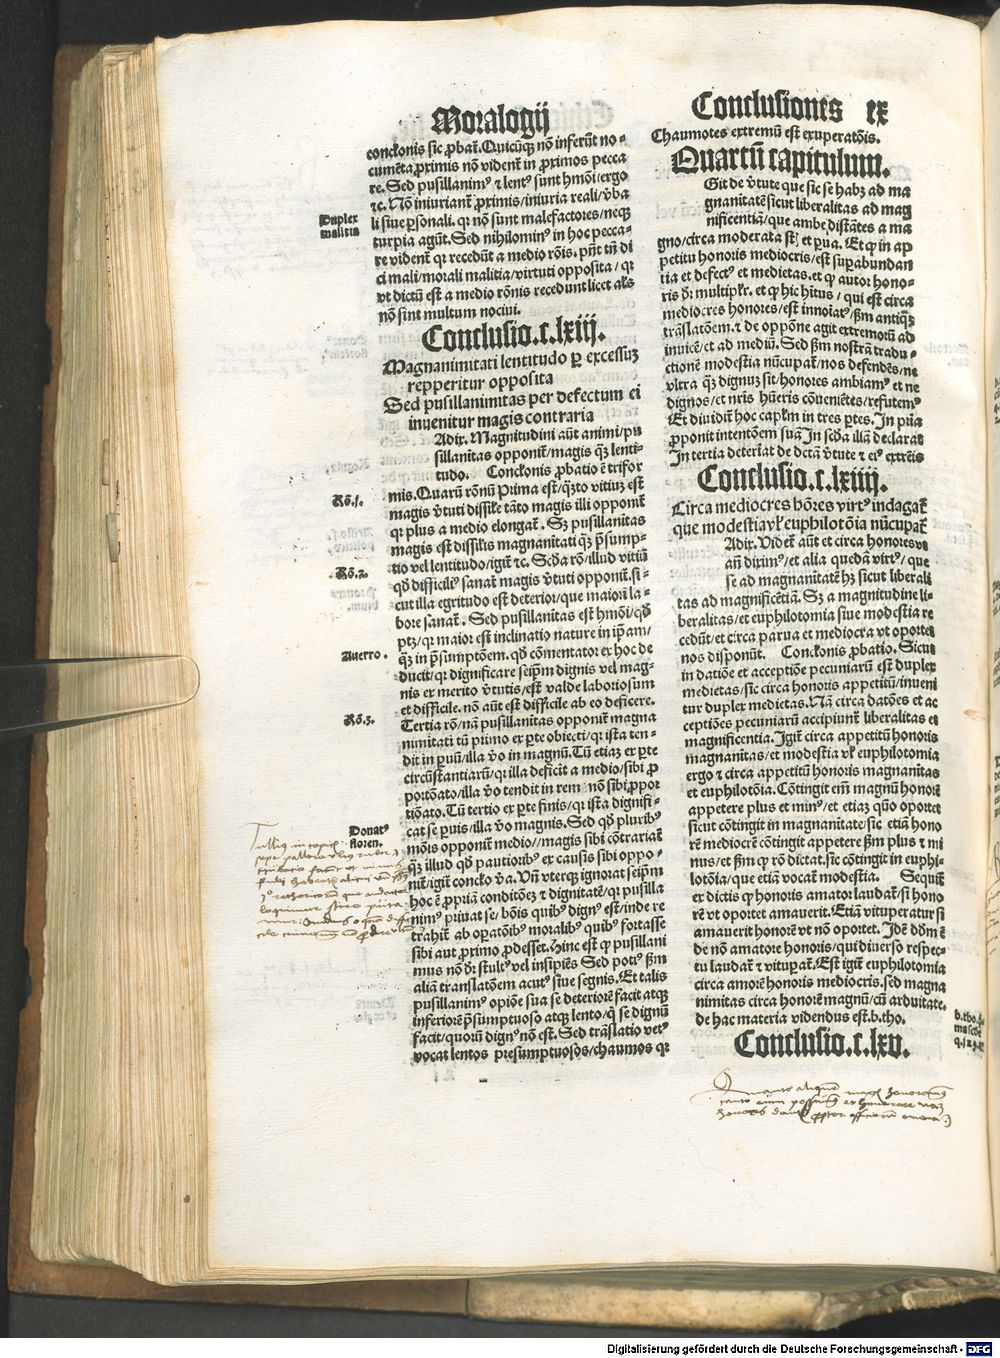 Moralogij
conclonis sic ꝓbat̃. Quicũqꝫ nõ inferũt no-
cumẽta ꝓximis nõ vident̃ in ꝓximos pecca
re. Sed pusillanimꝰ ⁊ lentꝰ sunt hmõi/ergo
⁊c. Nõ iniuriant̃ ꝓximis/iniuria reali/v̓ba
li siue ꝑsonali. qꝛ nõ sunt malefactores/necqꝫ
turpia agũt. Sed nihilominꝰ in hoc pecca-
re vident̃ qꝛ recedũt a medio rõis. pñt tñ di
ci mali/morali malitia/virtuti opposita/ qꝛ
vt dictũ est a medio rõnis recedunt licet al̓s
nõ sint multum nociui.
Duplex
malitia
Conclusio.c.lxiij.
Magnanimitati lentitudo ꝑ excessuꝫ
repperitur opposita
Sed pusillanimitas per defectum ei
inuenitur magis contraria
Adix. Magnitudini aũt animi/pu
sillanitas opponit̃/magis qꝫ lenti-
tudo. Conclonis ꝓbatio ẽ trifor
mis. Quarũ rõnũ Prima est/qꝫto vitiuꝫ est
magis v̓tuti dissil̓e tãto magis illi opponit̃
qꝛ plus a medio elongat̃. Sꝫ pusillanitas
magis est dissil̓is magnanitati qꝫ p̃sump-
tio vel lentitudo/igit̃ ⁊c. Scḋa rõ/illud vitiũ
qḋ difficiliꝰ sanat̃ magis v̓tuti opponit̃. si-
cut illa egritudo est deterior/que maiori la-
bore sanat̃. Sed pusillanitas est hmõi/qḋ
ptꝫ/qꝛ maior est inclinatio nature in ip̃am/
qꝫ in p̃sumptõem. qḋ cõmentator ex hoc de
ducit/qꝛ dignificare seip̃m dignis vel mag-
nis ex merito v̓tutis/est valde laboriosum
et difficile. nõ aũt est difficile ab eo deficere.
Tertia rõ/nã pusillanitas opponit̃ magna
nimitati tũ primo ex ꝑte obiecti/qꝛ ista ten-
dit in ꝑuũ/illa v̓o in magnũ. Tũ etiaꝫ ex ꝑte
circũstantiarũ/qꝛ illa deficit a medio/sibi ꝓ
portõato/illa v̓o tendit in rem nõ sibi ꝓpor
tiõato. Tũ tertio ex ꝑte finis/qꝛ ista dignifi-
cat se ꝑuis/illa v̓o magnis. Sed qḋ pluribꝰ
mõis opponit̃ medio//magis sibi cõtrariat̃
qꝫ illud qḋ pautioribꝰ ex causis sibi oppo-
nit̃/igit̃ conclo v̓a. Vñ vterqꝫ ignorat seip̃m
hoc ẽ ꝓpriã conditõeꝫ ⁊ dignitatẽ/qꝛ pusilla
nimꝰ priuat se/bõis quibꝰ dignꝰ est/inde re
trahit̃ ab oꝑatõibꝰ moralibꝰ quibꝰ fortasse
sibi aut ꝓximo ꝓdesset. Hinc est ꝙ pusillani
mus nõ dr̃ stultꝰ vel insipiẽs Sed potiꝰ ẜm
aliã translatõem acutꝰ siue segnis. Et talis
pusillanimꝰ opiõe sua se deteriorẽ facit atqꝫ
inferiorẽ p̃sumptuoso atqꝫ lento/qꝛ se dignũ
facit/quorũ dignꝰ nõ est. Sed trãslatio vetꝰ
vocat lentos presumptuosos/chaumos qꝛ
Rõ.1.
Rõ.2.
Auerro.
Rõ.3.
Donatꝰ
floren.
Tullius in topicis
Conclusiones ex
Chaumotes extremũ est exuperatõis.
Quartũ capitulum.
Git de v̓tute que sic se habꝫ ad ma
gnanitatẽ sicut liberalitas ad mag
nificentiã/que ambe distãtes a ma
gno/circa moderata sũt et ꝑua. Et ꝙ in ap
petitu honoris mediocris/est suꝑabundan
tia et defectꝰ et medietas. et ꝙ autor hono-
ris dr̃ multiplr̃. et ꝙ hic hitus / qui est circa
mediocres honores/est innoiatꝰ/ẜm antiqꝫ
trãslatõem. ⁊ de oppõne agit extremorũ ad
inuicẽ/et ad mediũ. Sed ẜm nostrã tradu-
ctionẽ modestia nũcupat̃/nos defendẽs/ne
vltra qꝫ dignuꝫ sit/honores ambiamꝰ et ne
dignos/et nr̃is hũeris cõueniẽtes/refutemꝰ
Et diuidit̃ hoc capl̃m in tres ꝑtes. In p̃ria
ꝓponit intentõem suã In scḋa illã declarat
In tertia determ̃at de dctã v̓tute ⁊ eiꝰ extr̃eis
Conclusio.c.lxiiij.
Circa mediocres hõres virtꝰ indagat̃
que modestia vl̓ euphilotõia nũcupat̃
Adix. Videt̃ aũt et circa honores vt
añ diximꝰ/et alia quedã virtꝰ/ que
se ad magnanitatẽ hꝫ sicut liberali
tas ad magnificẽtiam. Sꝫ a magnitudine li-
beralitas/et euphilotomia siue modestia re
cedũt/et circa parua et mediocra vt oportet
nos disponũt. Conclonis ꝓbatio. Sicut
in datiõe et acceptiõe pecuniarũ est duplex
medietas/sic circa honoris appetitũ/inueni
tur duplex medietas. Nã circa datões et ac
ceptiões pecuniarũ accipiunt̃ liberalitas et
magnificentia. Igit̃ circa appetitũ honoris
magnanitas/et modestia vl̓ euphilotomia
ergo ⁊ circa appetitũ honoris magnanitas
et euphilotõia. Cõtingit em̃ magnũ honorẽ
appetere plus et minꝰ/et etiaꝫ qũo oportet
sicut cõtingit in magnanitate/sic etiã hono
rẽ mediocrẽ cõtingit appetere ẜm plus ⁊ mi
nus/et ẜm ꝙ rõ dictat. sic cõtingit in euphi-
lotõia/que etiã vocat̃ modestia. Sequit̃
ex dictis ꝙ honoris amator laudat̃/si hono
rẽ vt oportet amauerit. Etiã vituperatur si
amauerit honorẽ vt nõ oportet. Idẽ dõm ẽ
de nõ amatore honoris/qui diuerso respec-
tu laudat̃ ⁊ vituꝑat̃. Est igit̃ euphilotomia
circa amorẽ honoris mediocris. sed magna
nimitas circa honorẽ magnũ/cũ arduitate.
de hac materia videndus est. b. tho.
b.tho.
Conclusio.c.lxv.
Digitalisierung gefördert durch die Deutsche Forschungsgemeinschaft - DFG